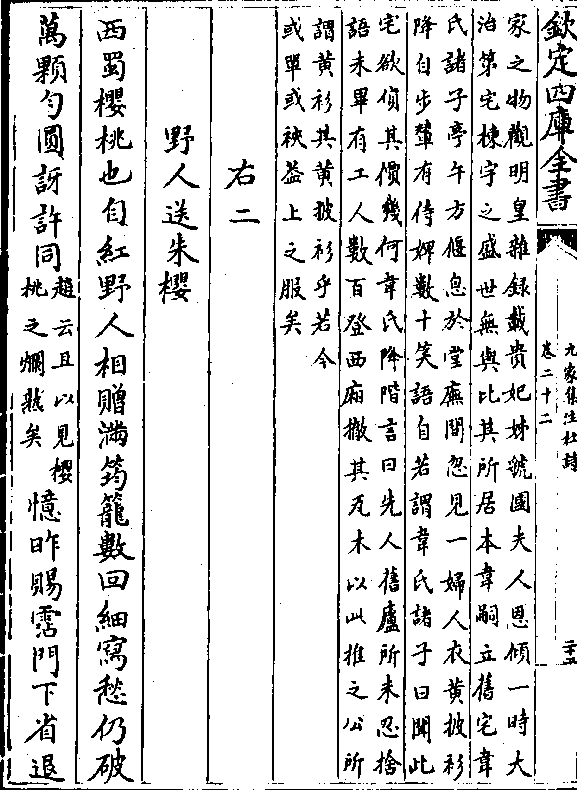 欽定四庫全書
九家集注杜詩
卷二十二
二十五
家之物觀明皇雜録載貴妃姊虢國夫人恩傾一時大
治第宅棟宇之盛世無與比其所居本韋嗣立舊宅韋
氏諸子亭午方偃息於堂廡間忽見一婦人衣黄披衫
降自步輦有侍婢數十笑語自若謂韋氏諸子曰聞此
宅欲貨其價幾何韋氏降階言曰先人舊廬所未忍捨
語未畢有工人數百登西廂撤其瓦木以此推之公所
謂黄衫其黄披衫乎若今
或單或裌葢上之服矣
右二
野人送朱櫻
西蜀櫻桃也自紅野人相贈滿筠籠數回細寫愁仍破
萬顆勻圓訝許同趙云且以見櫻桃之爛熟矣憶昨賜霑門下省退